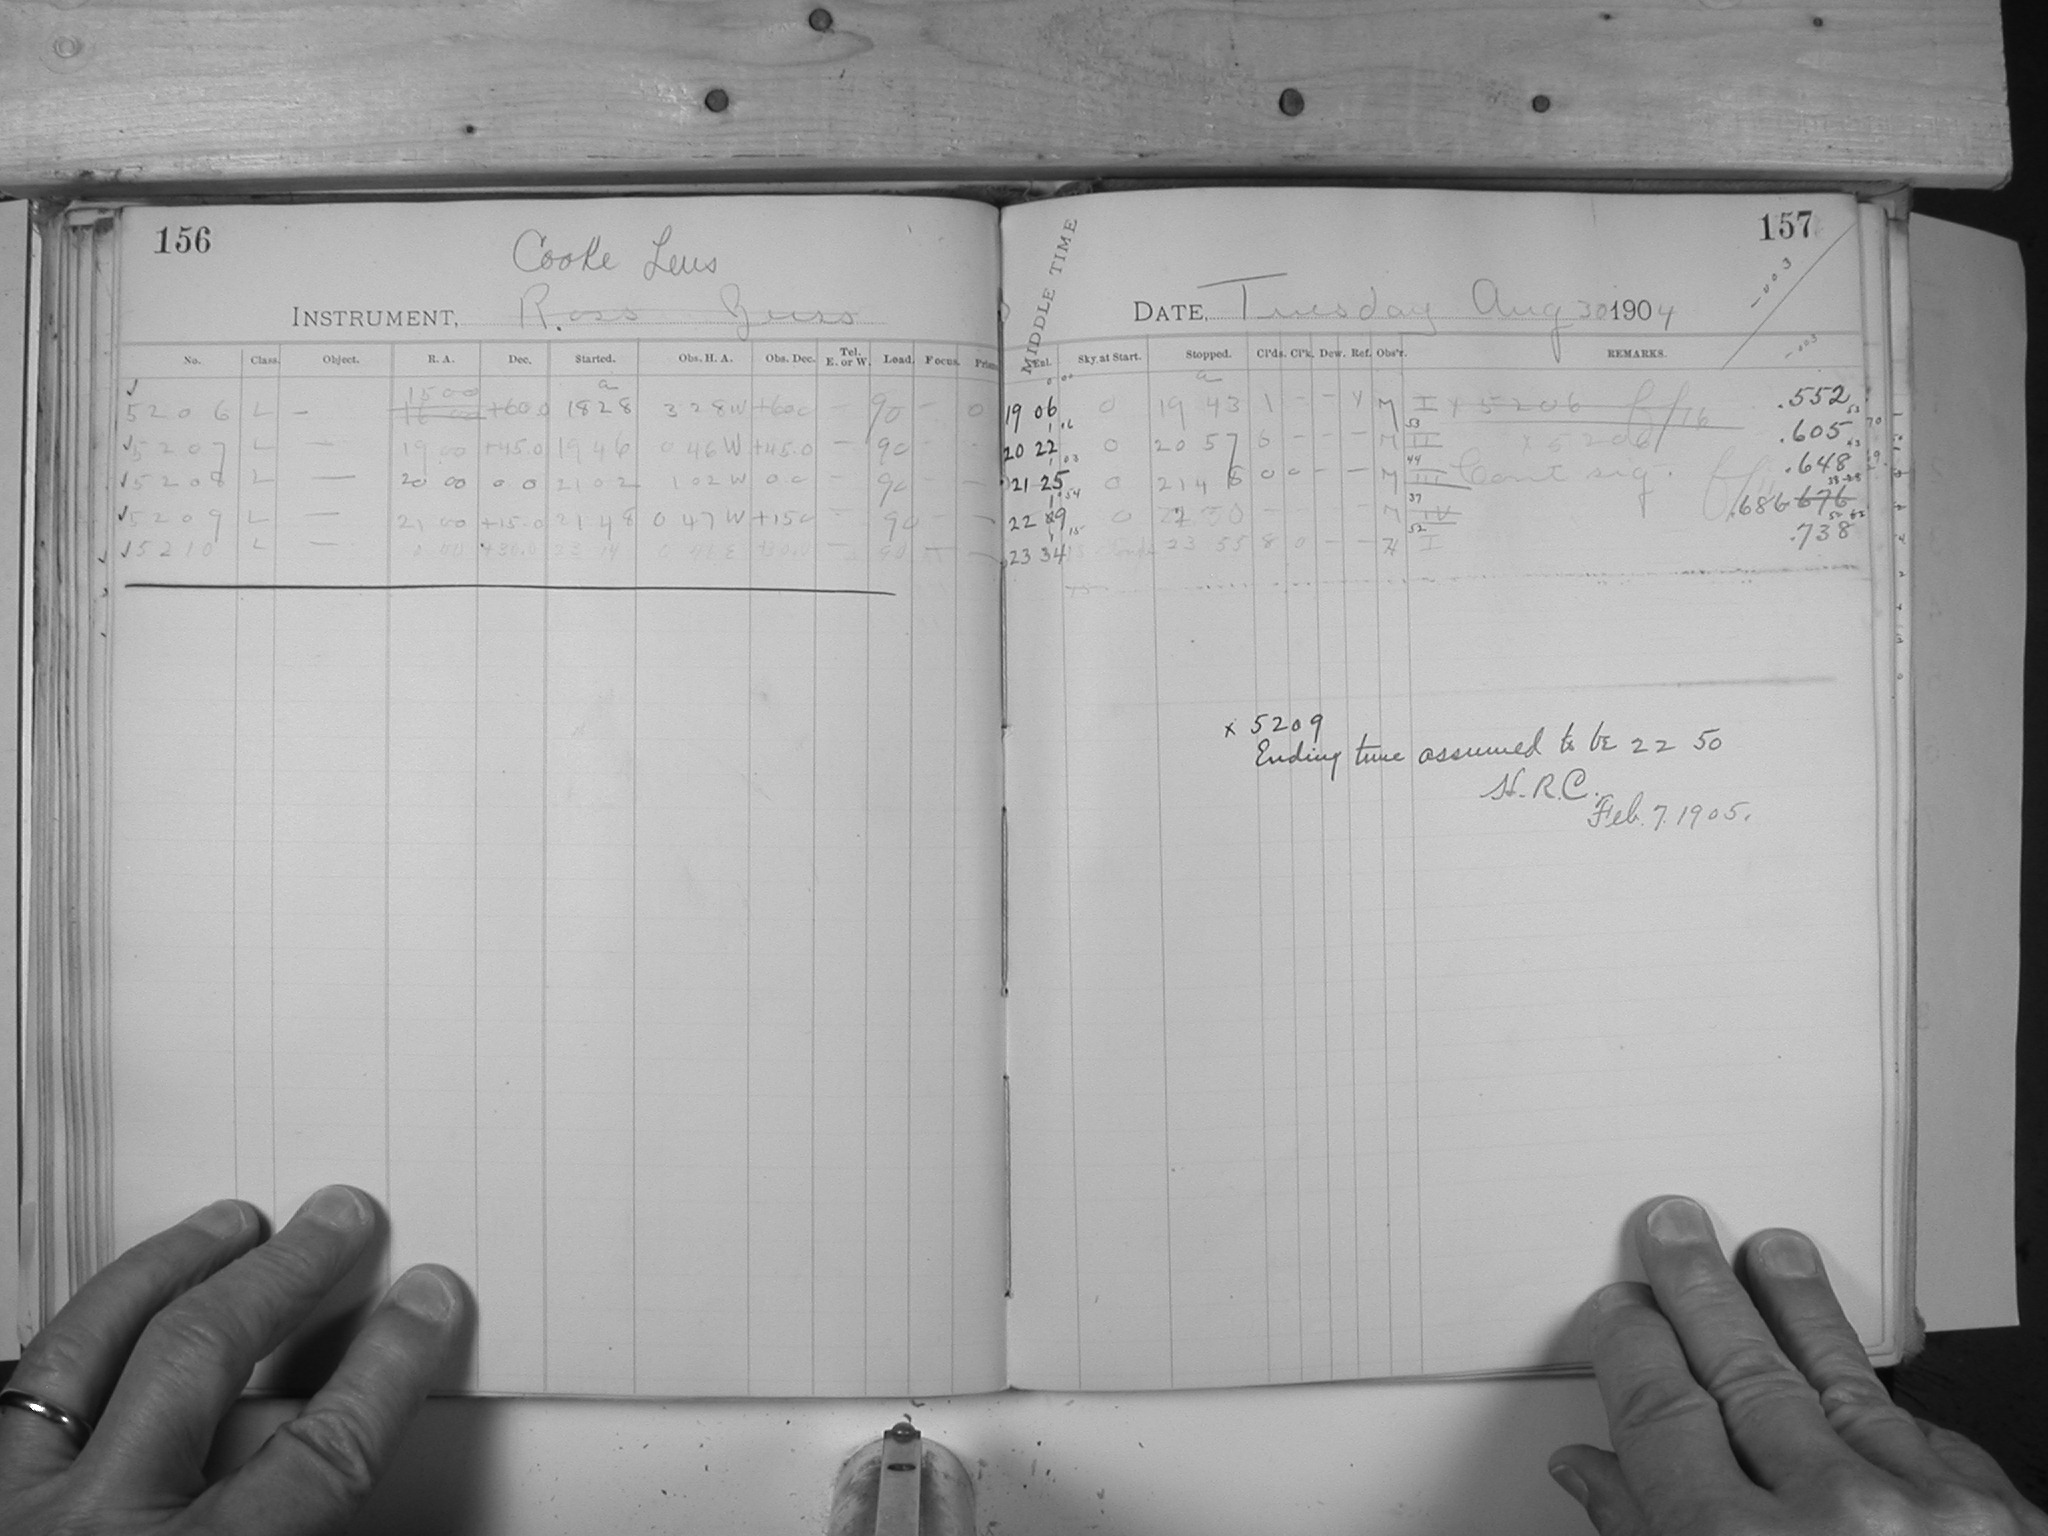 156
Cooke Lens
INSTRUMENT, Ross
No. Class. Object. R. A. Dec. Started. Obs. H. A. Obs. Dec. Tel. E. or W. Load. Focus. Prism
1500
a
5206 L — +60.0 1828 3 28 W +60.0 — 90 — 0
5207 L — 19 00 +45.0 19 46 0 46 W +45.0 — 90 — —
5208 L — 20 00 0 0 21 02 1 02 W 0.0 — 90 — —
5209 L — 21 00 +15.0 21 48 0 47 W +15.0 — 90 — —
5210 L — +30.0 90
157
MIDDLE TIME
-.003
DATE, Tuesday Aug 30 1904
Sky. at Start. Stopped. Cl'ds. Cl'k. Dew. Ref. Obs'r. REMARKS.
-.003
a
19 06 0 19 43 1 — — M I x 5206 f/16 .552
53
20 22 0 20 57 6 — — — M II x 5206 .605
44
21 25 0 21 48 0 0 — — M III Cont sig. .648
37
22 19 0 22 50 — — — — M IV .686 676
52
23 34 23 55 8 0 — — I .738
x 5209
Ending time assumed to be 22 50
H. R. C.
Feb. 7. 1905.